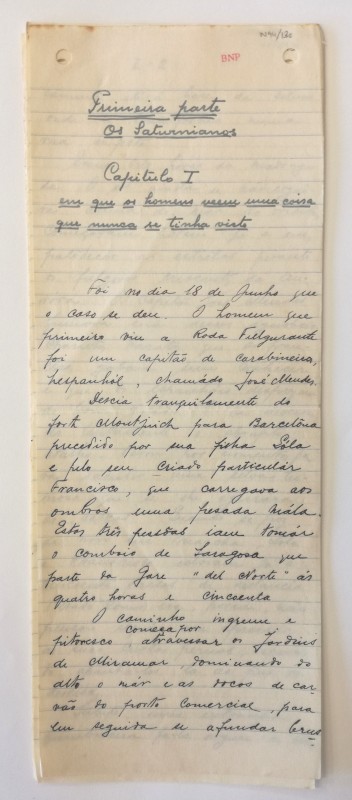 N41/130
BNP
Primeira parte
Os Saturnianos
Capitulo I
em que os homens veem uma coisa
que nunca se tinha visto
Foi no dia 18 de Junho que
o caso se deu. O homem que
primeiro viu a Roda Fulgurante
foi um capitão de carabineiros,
hespanhól, chamádo José Mendes.
Descia tranquilamente do
forte Montjuich para Barcelôna
precedido por sua filha Lóla
e pelo seu criado particulár
Francisco, que carregava aos
ombros uma pesada mála.
Estas três pessôas iam tomár
o comboio de Saragoça que
parte da Gare "del Norte" ás
quatro horas e cincoenta
O caminho ingreme e
pitoresco, começa por atravessar os Jardins
de Miramar, dominando do
alto o már e as docas de car-
vão do porto comercial, para
em seguida se afundar brus-